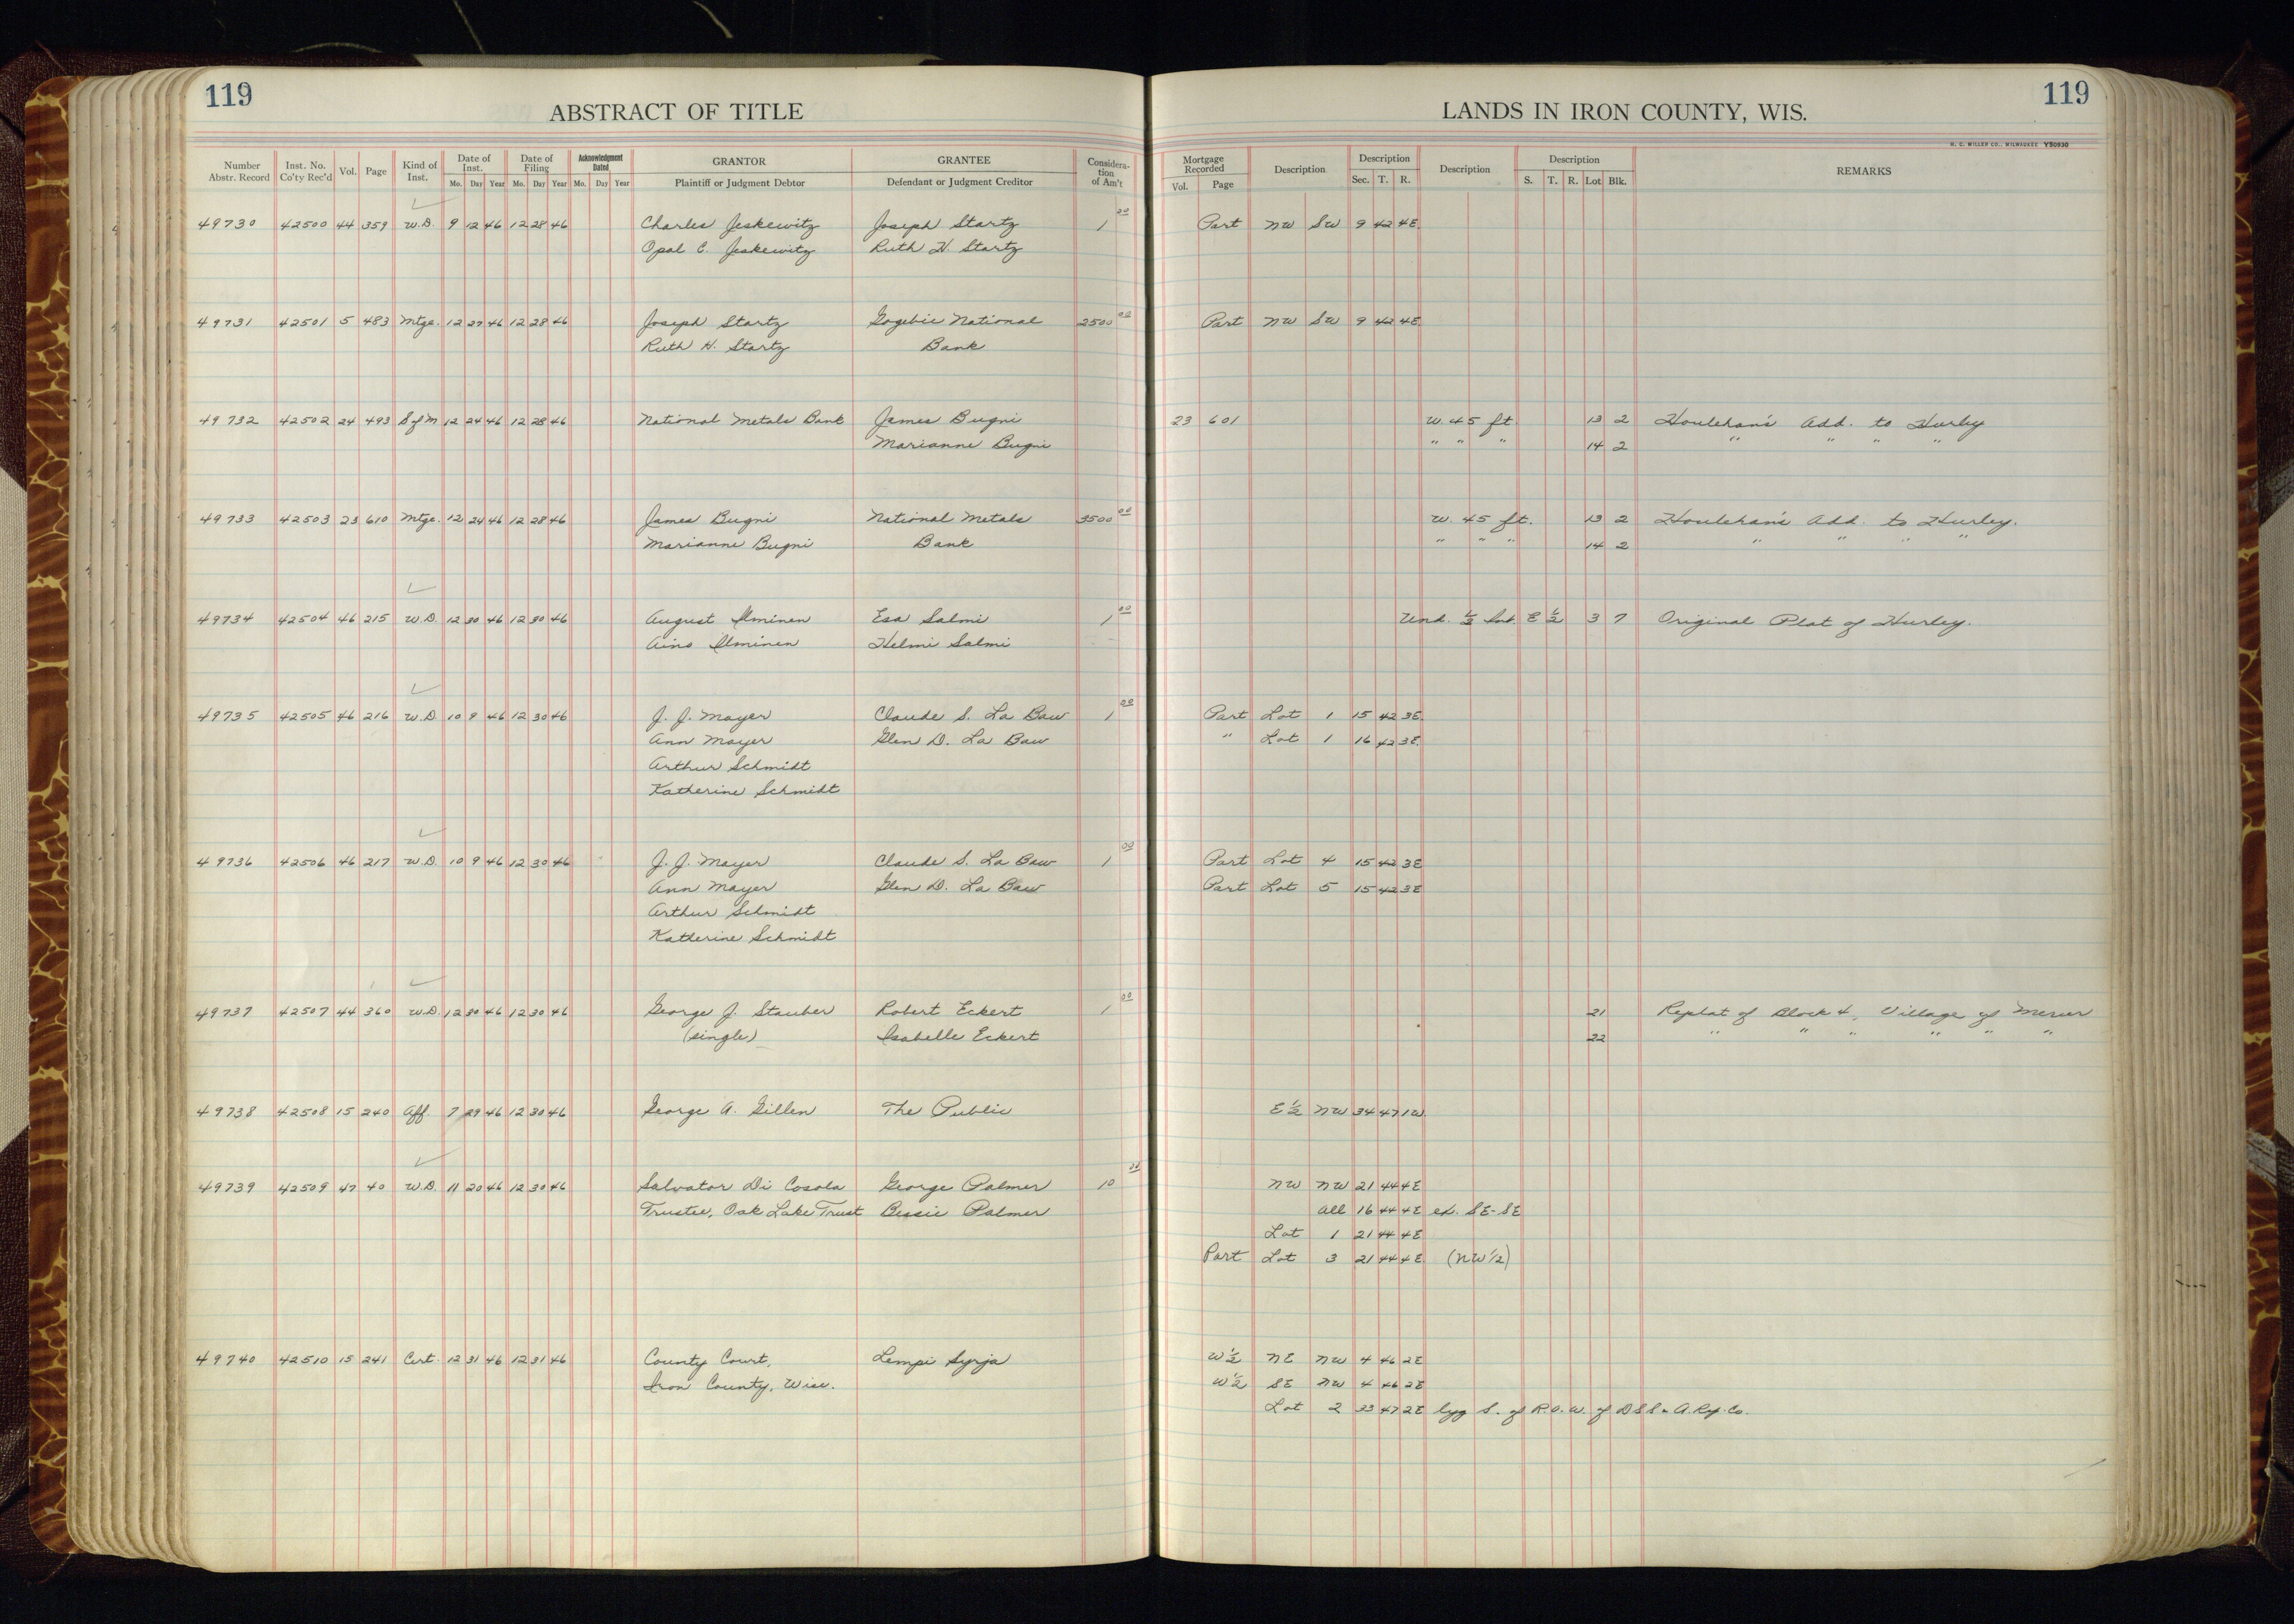 119
ABSTRACT OF TITLE
LANDS IN IRON COUNTY, WIS.
119
H. C. MILLER CO., MILWAUKEE Y50930
Number Abstr. Record Inst. No. Co'ty Rec'd Vol. Page Kind of Inst. Date of Inst. Mo. Day Year Date of Filing Mo. Day Year Acknowledgment Dated Mo. Day Year GRANTOR Plaintiff or Judgment Debtor GRANTEE Defendant or Judgment Creditor Consideration of Am't Mortgage Recorded Vol. Page Description Description Sec. T. R. Description Description S. T. R. Lot Blk. REMARKS
49730 42500 44 359 W.D. 9 12 46 12 28 46 Charles Jeskewitz Joseph Startz 1 00 Part NW SW 9 42 4E
Opal C. Jeskewitz Ruth H. Startz
49731 42501 5 483 Mtge. 12 27 46 12 28 46 Joseph Startz Gogebic National 2500 00 Part NW SW 9 42 4E
Ruth H. Startz Bank
49732 42502 24 493 S of M 12 24 46 12 28 46 National Metals Bank James Bugni 23 601 W. 45 ft 13 2 Houlehan's Add. to Hurley
Marianne Bugni " " " 14 2 " " " "
49733 42503 23 610 Mtge. 12 24 46 12 28 46 James Bugni National Metals 3500 00 W. 45 ft. 13 2 Houlehan's Add. to Hurley.
Marianne Bugni Bank " " " 14 2 " " " "
49734 42504 46 215 W.D. 12 30 46 12 30 46 August Ilminen Esa Salmi 1 00 Und. 1/2 Int. E 1/2 3 7 Original Plat of Hurley.
Aino Ilminen Helmi Salmi
49735 42505 46 216 W.D. 10 9 46 12 30 46 J. J. Mayer Claude S. La Baw 1 00 Part Lot 1 15 42 3E
Ann Mayer Glen D. La Baw " Lot 1 16 42 3E
Arthur Schmidt
Katherine Schmidt
49736 42506 46 217 W.D. 10 9 46 12 30 46 J. J. Mayer Claude S. La Baw 1 00 Part Lot 4 15 42 3E
Ann Mayer Glen D. La Baw Part Lot 5 15 42 3E
Arthur Schmidt
Katherine Schmidt
49737 42507 44 360 W.D. 12 30 46 12 30 46 George J. Stauber Robert Eckert 1 00 21 Replat of Block 4, Village of Mercer
(single) Isabelle Eckert 22 " " " " " "
49738 42508 15 240 Aff. 7 29 46 12 30 46 George A. Gillen The Public E 1/2 NW 34 47 1W
49739 42509 47 40 W.D. 11 20 46 12 30 46 Salvator Di Cosola George Palmer 10 00 NW NW 21 44 4E
Trustee, Oak Lake Trust Bessie Palmer All 16 44 4E ex. SE-SE
Lot 1 21 44 4E
Part Lot 3 21 44 4E (NW 1/2)
49740 42510 15 241 Cert. 12 31 46 12 31 46 County Court, Lempi Syrja W 1/2 NE NW 4 46 2E
Iron County, Wisc. W 1/2 SE NW 4 46 2E
Lot 2 33 47 2E lyg S. of R.O.W. of D S S & A. Ry. Co.